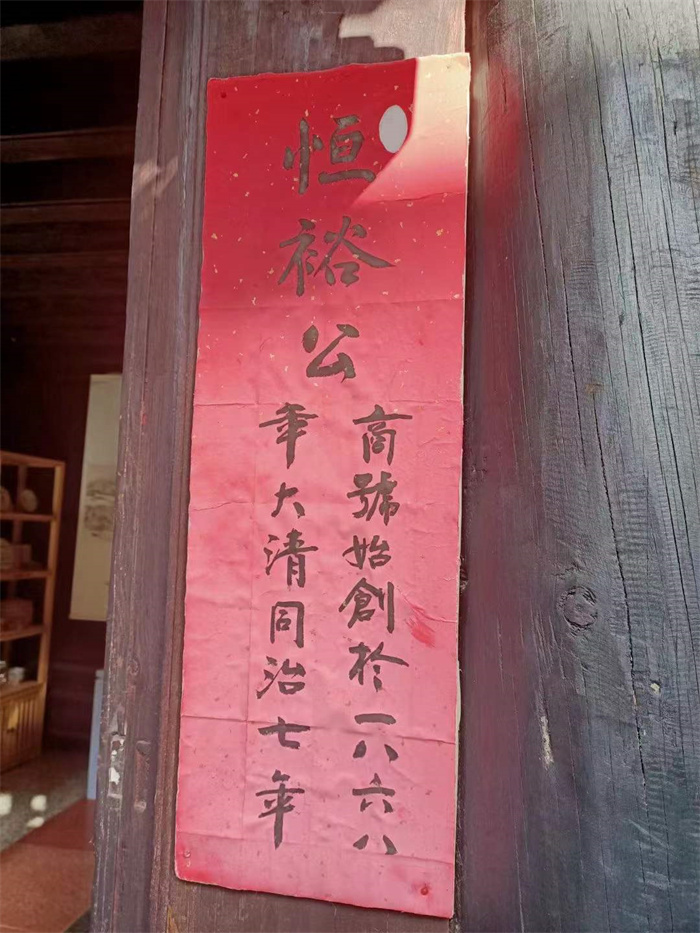 恒裕公
商號始創於一八六八
年大清同治七年